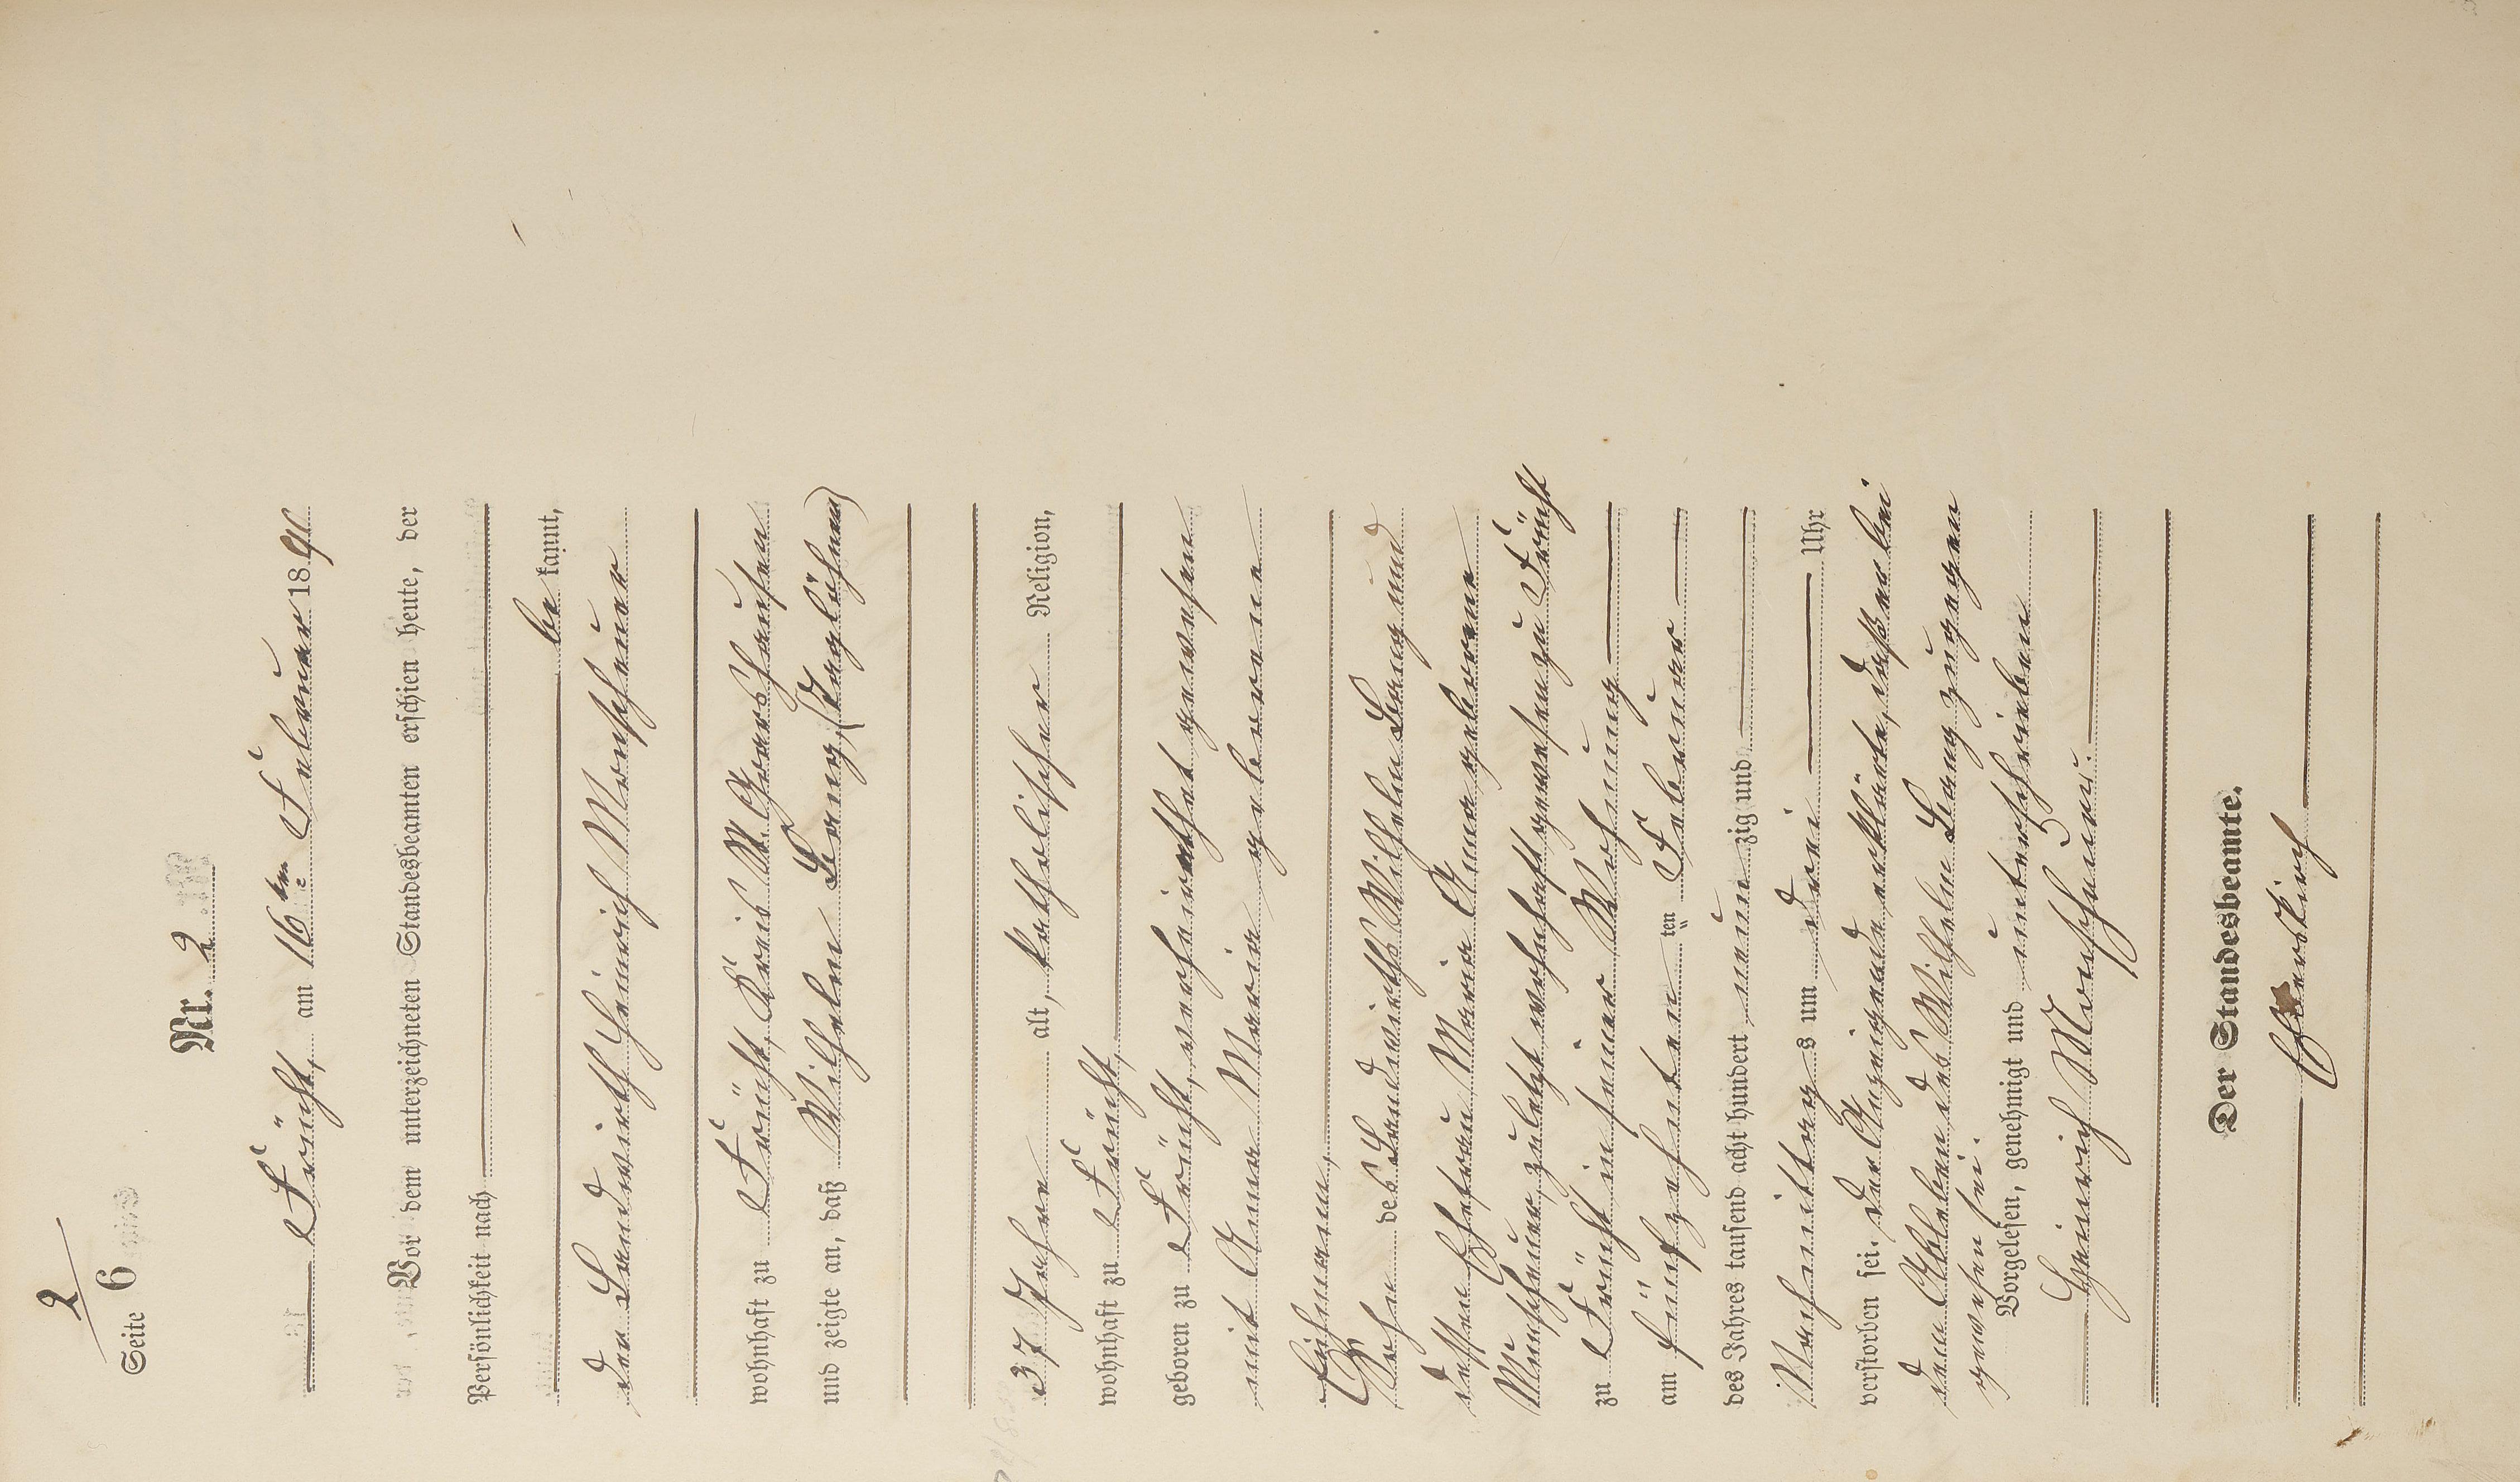 2
Seite 6
Nr. 2
Frücht, am 16ten Februar 1890
Vor dem unterzeichneten Standesbeamten erschien heute, der
Persönlichkeit nach
bekannt,
der Landwirth Heinrich Monschauer
wohnhaft zu Frücht, Kreis St. Goarshausen
und zeigte an, daß Wilhelm Lang, (Taglöhner)
37 Jahre alt, katholischer Religion,
wohnhaft zu Frücht,
geboren zu Frücht, verheirathet gewesen
mit Anna Maria geborenen
Sohn des Landwirths Wilhelm Lang und
dessen Ehefrau Maria Anna geborene
Monschauer, zuletzt wohnhaft gewesen zu Frücht
zu Frücht in seiner Wohnung
am fünfzehnten ten Februar
des Jahres tausend acht hundert neunzig und
Nachmittags um drei Uhr
verstorben sei. Der Anzeigende erklärte, daß er bei
dem Ableben des Wilhelm Lang zugegen
gewesen sei.
Vorgelesen, genehmigt und unterschrieben
Heinrich Monschauer.
Der Standesbeamte.